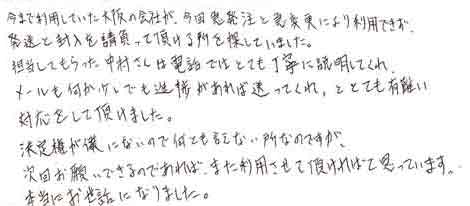 今まで利用していた大阪の会社が、今回急発注と急変更により利用できず、
発送と封入を請負って頂ける所を探していました。
担当してもらった中村さんは電話ではとても丁寧に説明してくれ、
メールも何か少しでも進捗があれば送ってくれ、ととても有難い
対応をして頂けました。
決定権が僕にないので何とも言えない所なのですが、
次回お願いできるのであれば、また利用させて頂ければと思っています。
本当にお世話になりました。